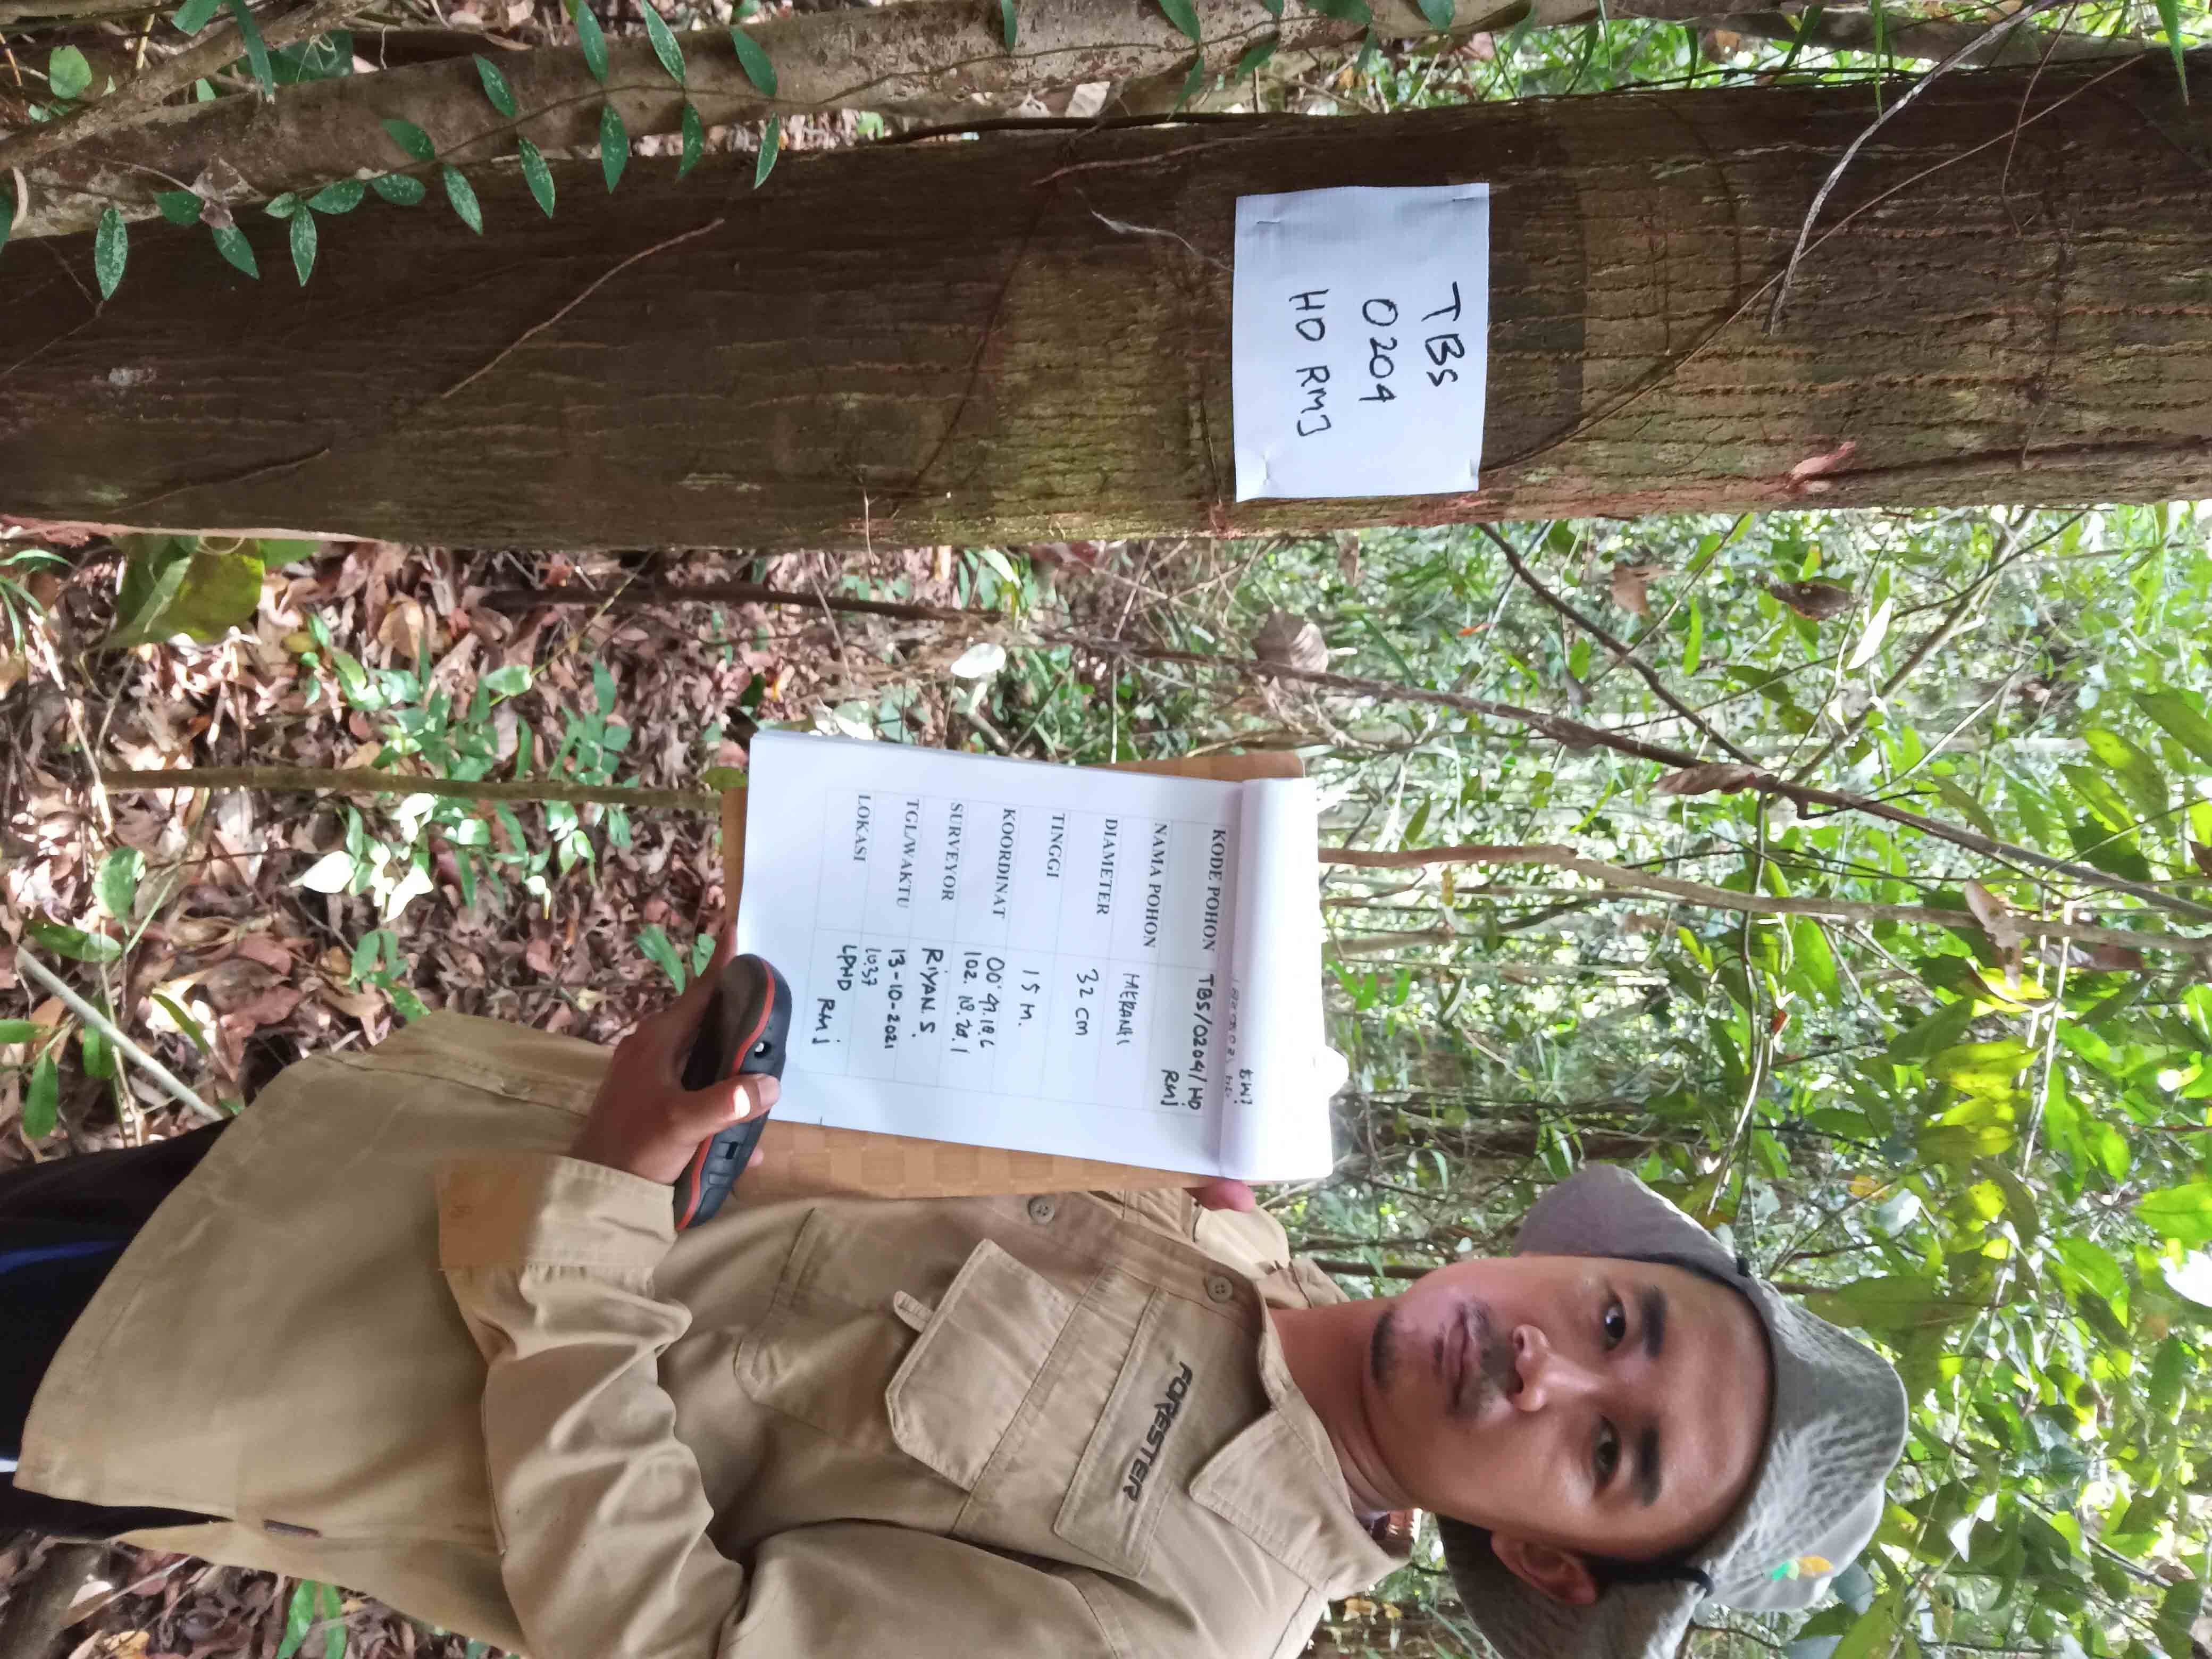 TBS
0204
HD RMJ
KODE POHON TBS/0204/HD
RMJ
NAMA POHON MERANTI
DIAMETER 32 cm
TINGGI 15 M.
KOORDINAT 00°47.18.6
102. 18.28.1
SURVEYOR RIYAN. S.
TGL/WAKTU 13-10-2021
10.37
LOKASI LPHD
RMJ
FORESTER